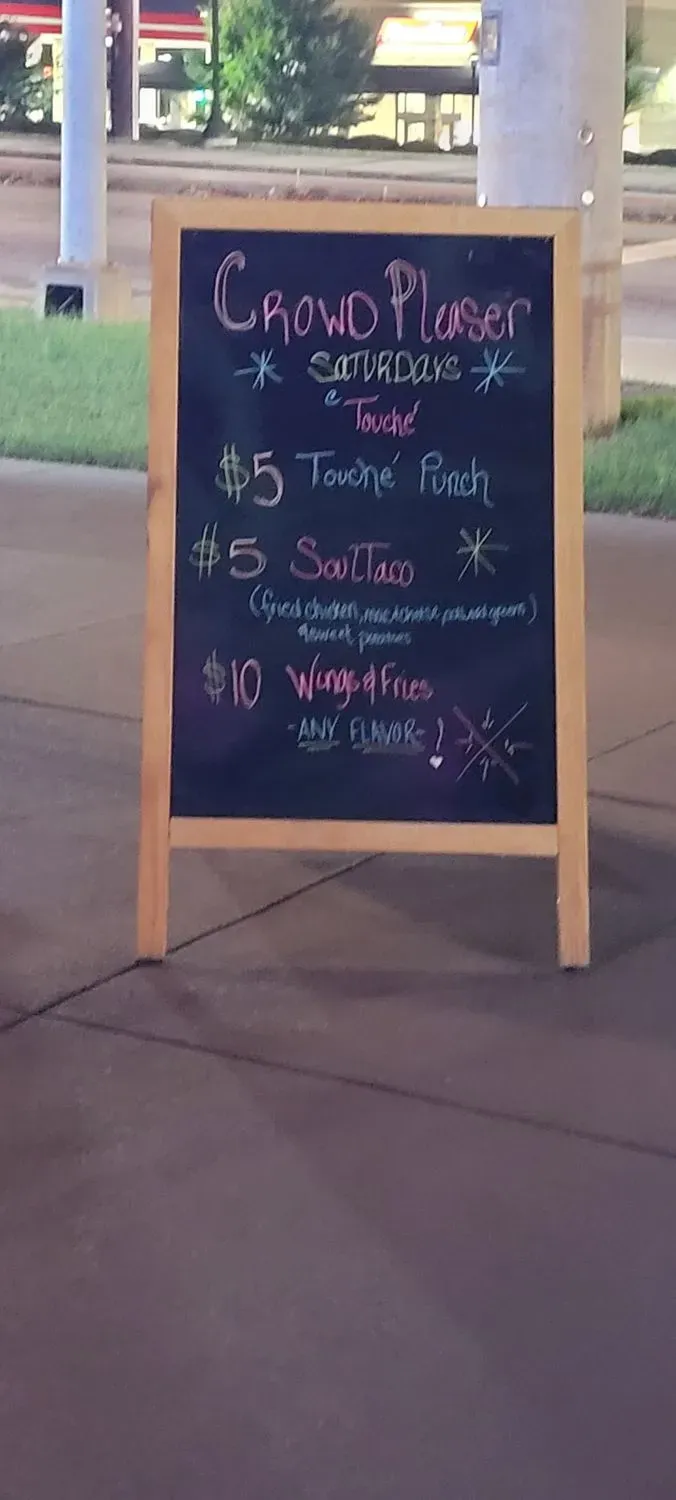 Crowd Pleaser
SATURDAYS
@ Touché
$5 Touché Punch
$5 Soul Taco
(fried chicken, mac&cheese,
&sweet potatoes
$10 Wings & Fries
-ANY FLAVOR- !